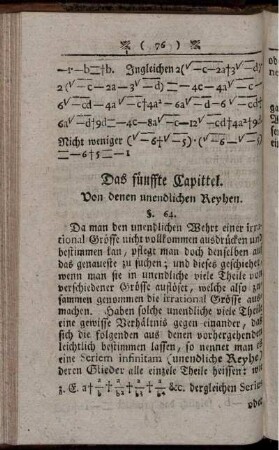 ( 76 )
—r—b=†b. Ingleichen 2(√—c—2a†3√—d)
2 (√—c—2a—3√—d) = —4c—4a√—c—
6√—cd—4a√—c†4a²—6a√—d—6√—cd†
6a√—d†9d=—4c—8a√—c—12√—cd†4a²†9d
Nicht weniger (√—6†√—5).(√—6—√—5)
=—6†5=—1
Das fünffte Capittel.
Von denen unendlichen Reyhen.
§. 64.
Da man den unendlichen Wehrt einer irra-
tional Grösse nicht vollkommen ausdrücken und
bestimmen kan, pflegt man doch denselben auf
das genaueste zu suchen; und dieses geschiehet,
wenn man sie in unendliche viele Theile von
verschiedener Grösse auflöset, welche also zu-
sammen genommen die irrational Grösse aus-
machen. Haben solche unendliche viele Theile
eine gewisse Verhältnis gegen einander, das
sich die folgenden aus denen vorhergehenden
leichtlich bestimmen lassen, so nennet man es
eine Seriem infinitam (unendliche Reyhe)
deren Glieder alle einzele Theile heissen: wie
z. E. a†a/b†a/b²†a/b³ &c. dergleichen Series
oder